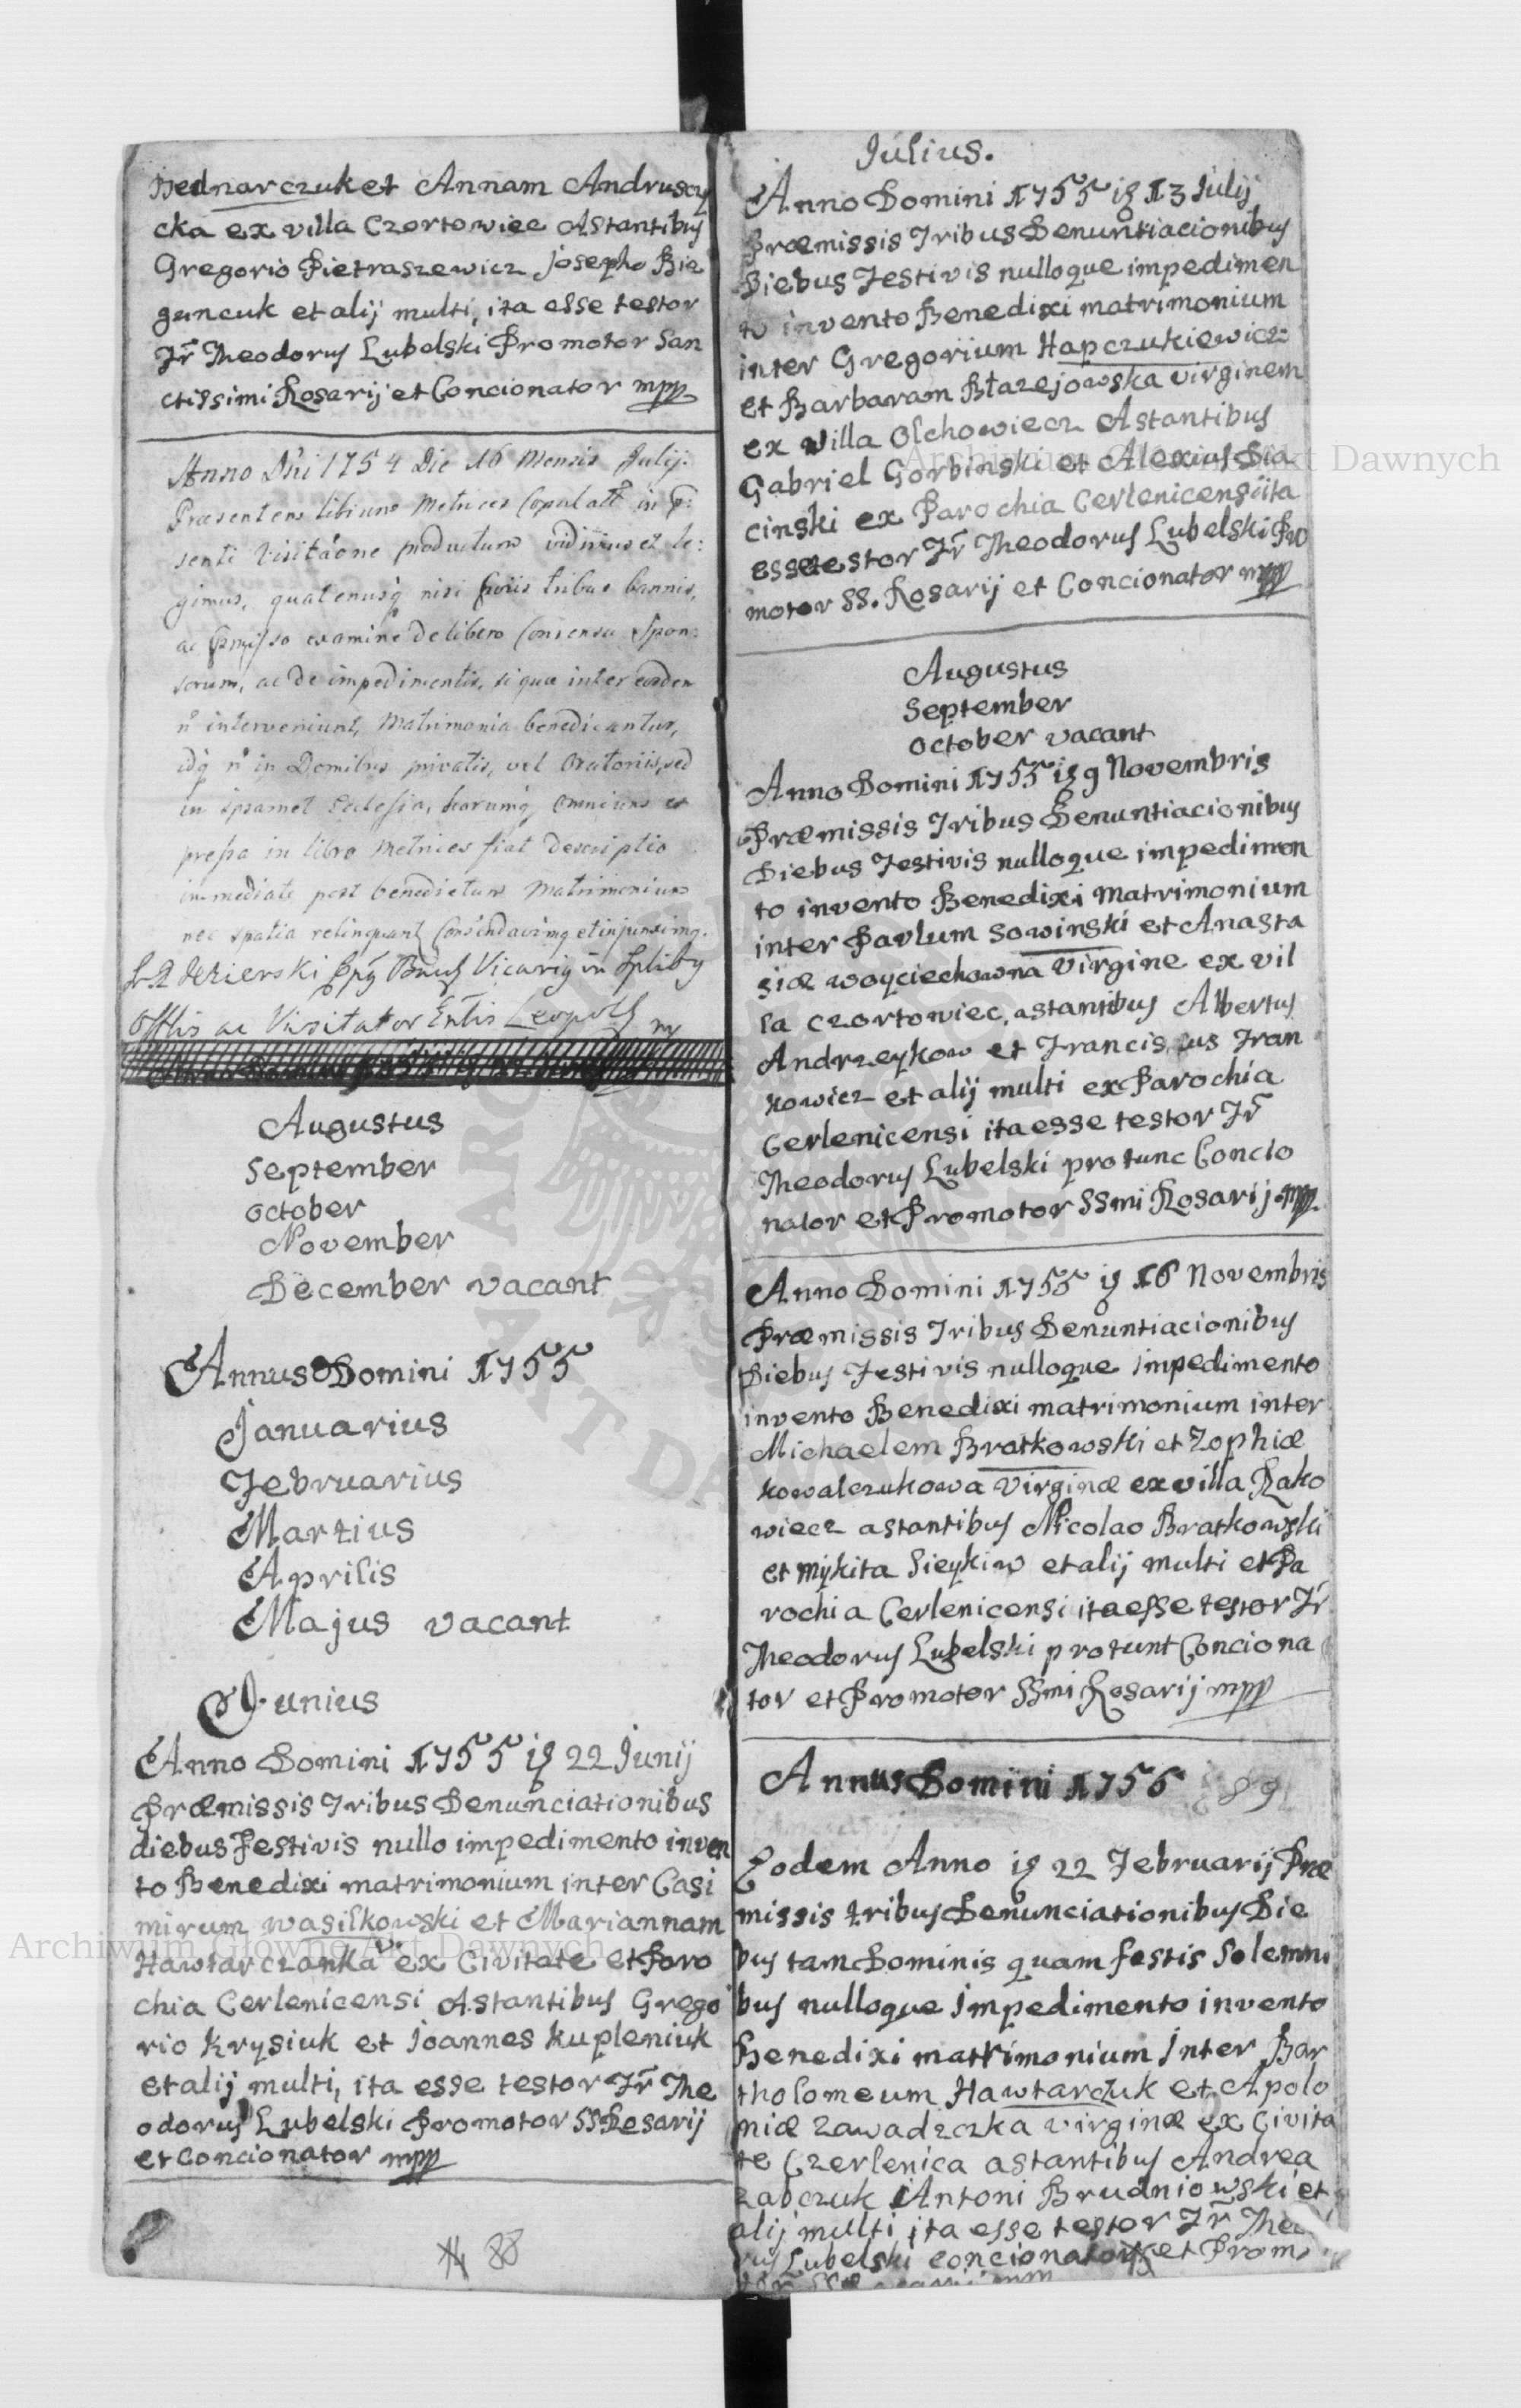 Bednarczuk et Annam Andruszy
cka ex villa Czortowiec Astantibus
Gregorio Pietraszewicz Josepho Bie
guncuk et alij multi, ita esse testor
Fr Theodorus Lubelski Promotor San
ctissimi Rosarij et Concionator mpp
Anno Dni 1754 Die 16 Mensis Julij.
Præsentem librum Metrices Copulatt in p:
senti Visitaone productum vidimus et le:
gimus, quatenusq nisi tribus bannis,
ac examine de libero Consensu Spon:
sorum, ac de impedimentis, si qua inter eosdem
n interveniunt, Matrimonia benedicantur,
idq n in Domibus privatis, vel Oratoriis, sed
in ipsamet Ecclesia, harumq omnium ex
pressa in libro Metrices fiat descriptio
immediate post benedictum Matrimonium
nec spatia relinquant et injunximq.
Vicariq in Splibq
Offlis ac Visitator
Augustus
September
October
November
December vacant
Annus Domini 1755
Januarius
Februarius
Martius
Aprilis
Majus vacant
Junius
Anno Domini 1755 is 22 Junij
Præmissis Tribus Denunciationibus
diebus Festivis nullo impedimento inven
to Benedixi matrimonium inter Casi
mirum Wasilkowski et Mariannam
Hawtarczanka ex Civitate et Paro
chia Cerlenicensi Astantibus Grego
rio Krysiuk et Joannes Kupleniuk
et alij multi, ita esse testor Fr The
odorus Lubelski Promotor SS Rosarij
et Concionator mpp
88
Julius.
Anno Domini 1755 is 13 Julij
Præmissis Tribus Denuntiacionibus
Diebus Festivis nulloque impedimen
to invento Benedixi matrimonium
inter Gregorium Hapczukiewicz
et Barbaram Błazejowska virginem
ex villa Olchowiecz Astantibus
Gabriel Gorbinski et Alexius Dia
cinski ex Parochia Cerlenicensi ita
esse testor Fr Theodorus Lubelski Pro
motor SS. Rosarij et Concionator mpp
Augustus
September
October vacant
Anno Domini 1755 is 9 Novembris
Præmissis Tribus Denuntiacionibus
Diebus Festivis nulloque impedimen
to invento Benedixi matrimonium
inter Pavlum Sowinski et Anasta
siæ Woyciechowna Virgine ex vil
la Czortowiec, astantibus Albertus
Andrzeykow et Franciscus Fran
kowicz et alij multi ex Parochia
Cerlenicensi ita esse testor Fr
Theodorus Lubelski protunc Concio
nator et Promotor SSmi Rosarij. mpp.
Anno Domini 1755 is 16 Novembris
Præmissis Tribus Denuntiacionibus
Diebus Festivis nulloque impedimento
invento Benedixi matrimonium inter
Michaelem Bratkowski et Zophiæ
Kowalczukowa Virginæ ex villa Rako
wiecz astantibus Nicolao Bratkowski
et Mykita Sieykiw et alij multi et Pa
rochia Cerlenicensi ita esse testor Fr
Theodorus Lubelski protunt Conciona
tor et Promotor SSmi Rosarij mpp
Annus Domini 1756 89
Eodem Anno is 22 Februarij Præ
missis tribus Denunciationibus Die
bus tam Dominis quam festis Solemni
bus nulloque Impedimento invento
Benedixi matrimonium Inter Bar
tholomeum Hawtarczuk et Apolo
niæ Zawadzczka virginæ ex Civita
te Czerlenica astantibus Andrea
Zabczuk Antoni Brudniowski et
alij multi ita esse testor Fr Theo
rus Lubelski concionator et Promo
Archiwum Główne Akt Dawnych
Archiwum Główne Akt Dawnych